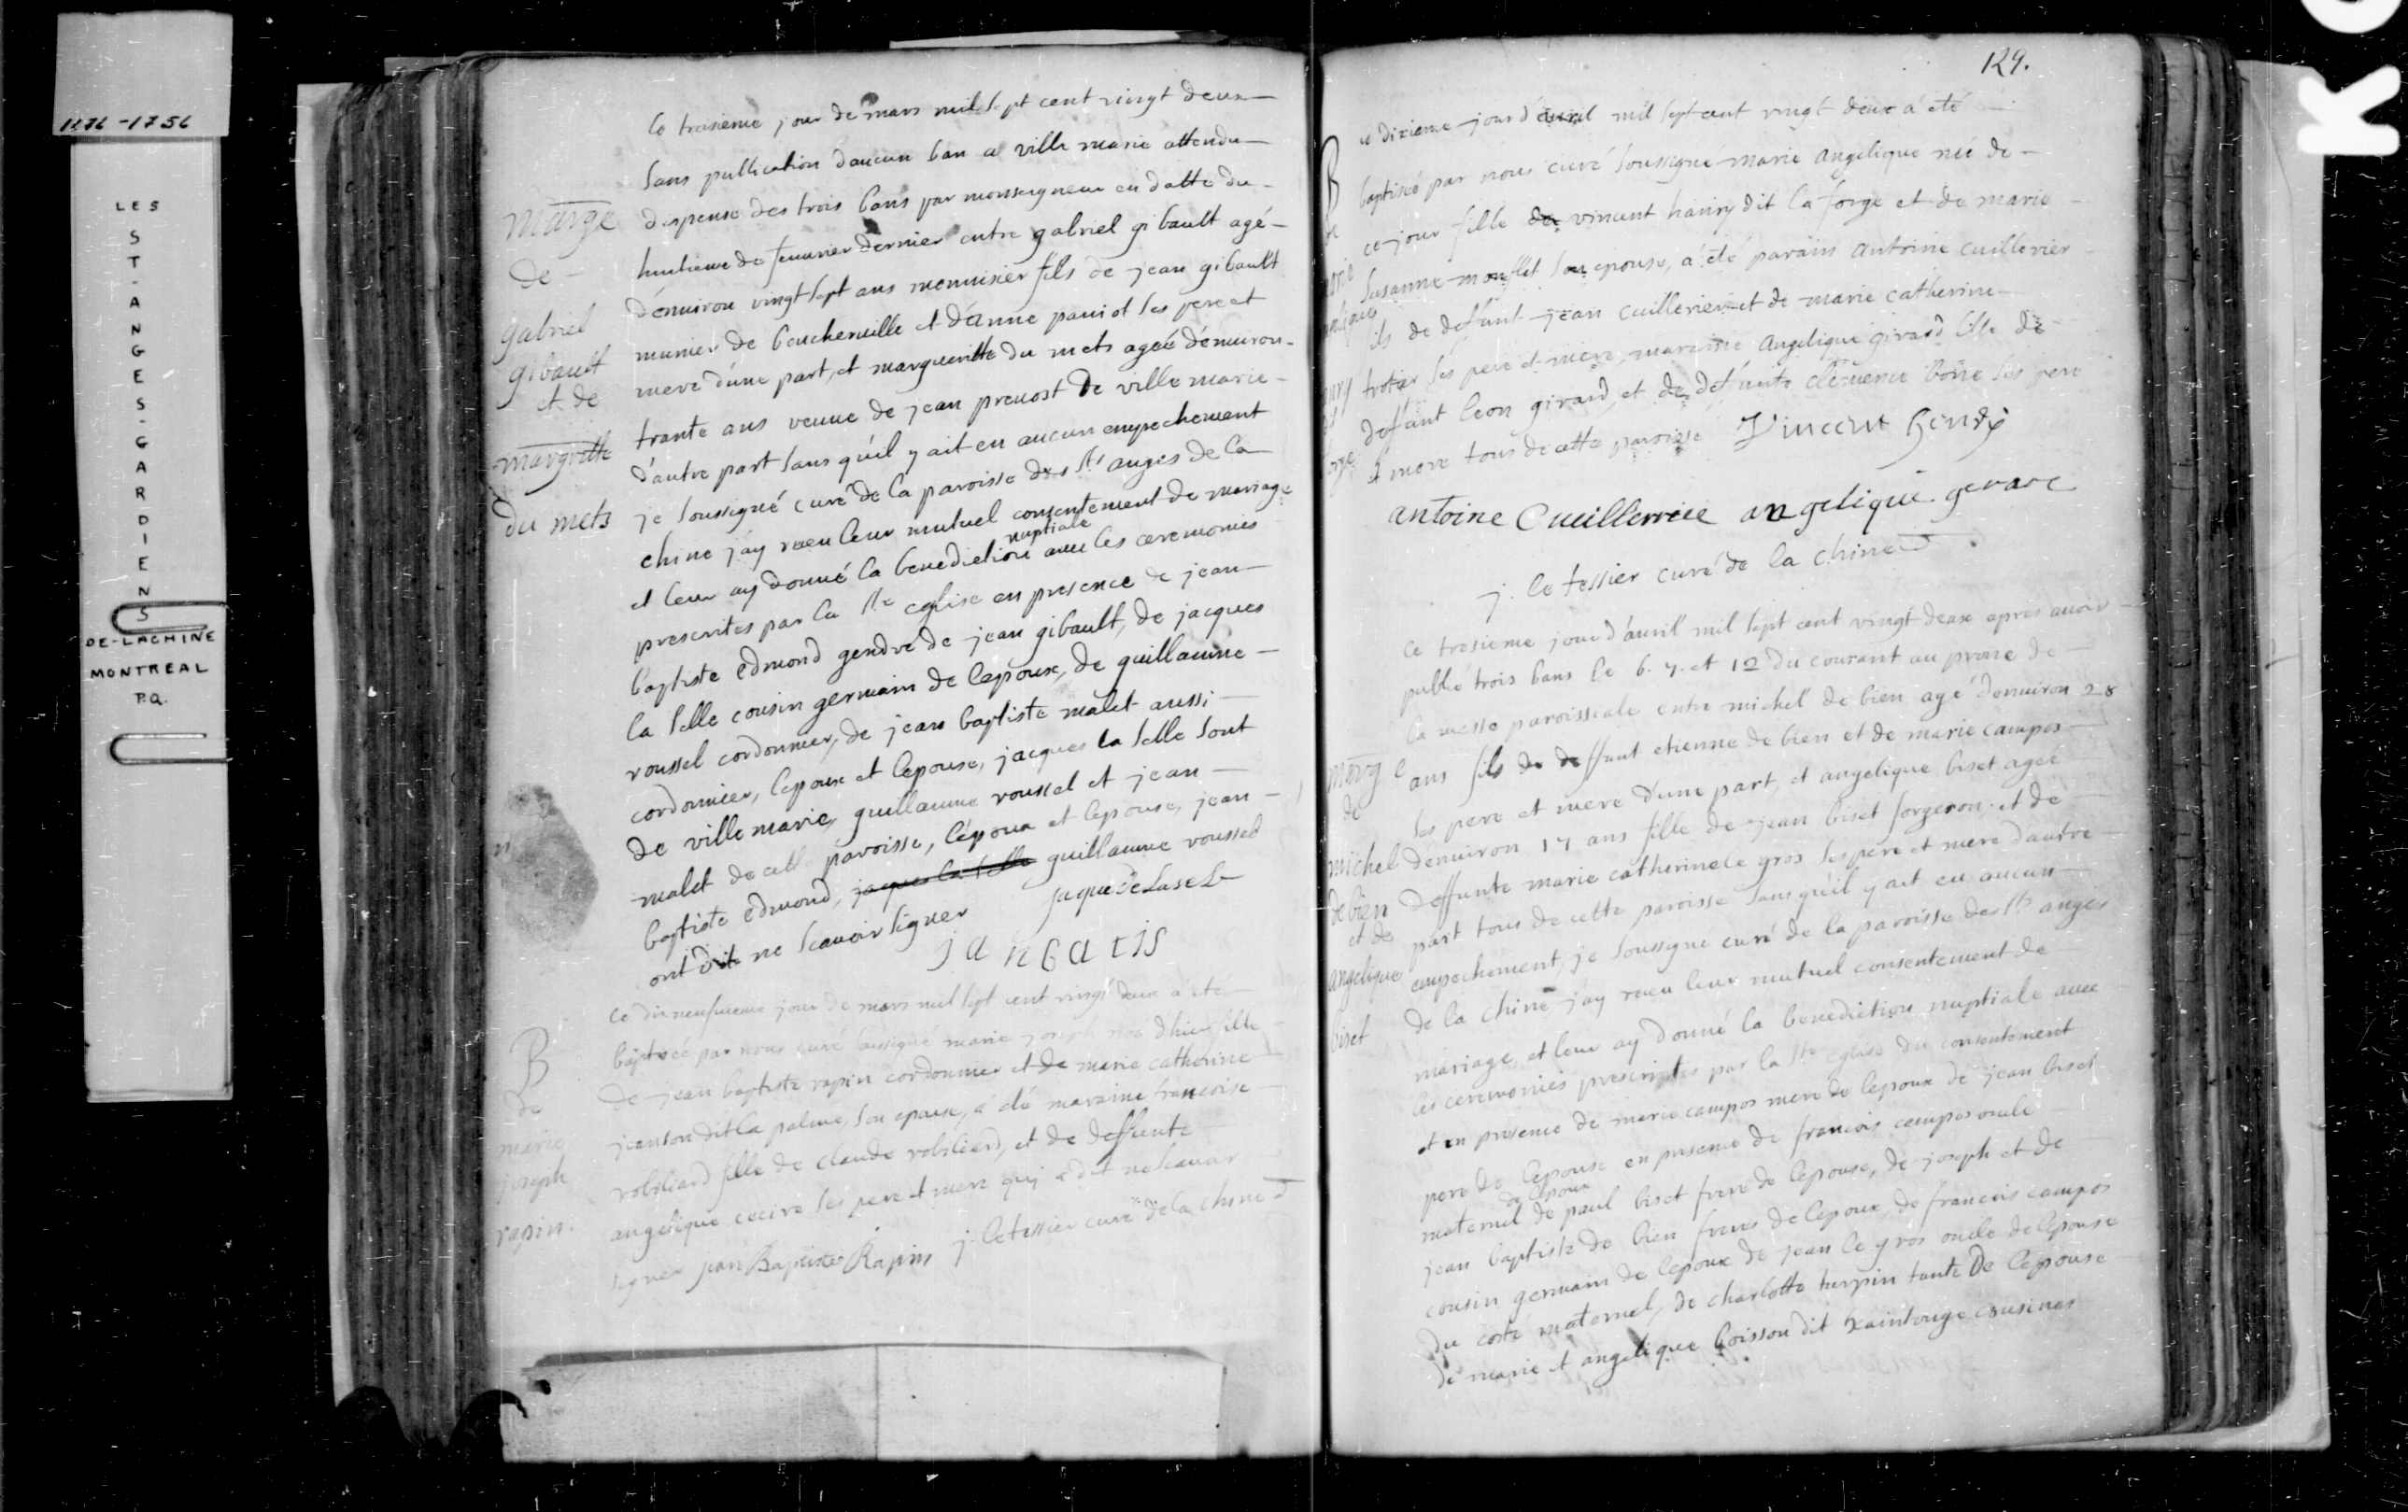 1676-1756
LES
S
T
-
A
N
G
E
S
-
G
A
R
D
I
E
N
S
DE-LACHINE
MONTREAL
P.Q.
Marge
de
gabriel
gibault
et de
margritte
du mets
Ce troisieme jour de mars mil sept cent vingt deux
sans publication daucun ban a ville marie attendu
dispense des trois bans par monseigneur en datte du
huitieme de feuvrier dernier entre gabriel gibault agé
d'enuiron vingt sept ans menuisier fils de jean gibault
munier de boucherville et d'anne paniot ses pere et
mere d'une part, et margueritte du mets ageé d'enuiron
trante ans veuue de jean preuost de ville marie
d'autre part sans qu'il y ait eu aucun empechement
je soussigné curé de la paroisse des sts anges de la
chine j'ay receu leur mutuel consentement de mariage
et leur ay donné la benediction nuptiale auec les ceremonies
prescrites par la ste eglise en presence de jean
baptiste edmond gendre de jean gibault, de jacques
la selle cousin germain de lepoux, de guillaume
roussel cordonnier, de jean baptiste malet aussi
cordonnier, lepoux et lepouse, jacques la selle sont
de ville marie, guillaume roussel et jean
malet de cette paroisse, lépoux et lepouse, jean
baptiste edmond, jacques la selle guillaume roussel
ont dit ne scauoir signer jaque de Lasel
janbatis
B
de
marie
joseph
rapin.
Ce dix neufuieme jour de mars mil sept cent vingt deux a ete
baptiseé par nous curé soussigné marie joseph neé d'hier fille
de jean baptiste rapin cordonnier et de marie catherine
janson dit la palme, son epouse, a été maraine francoise
robiliard fille de claude robiliard, et de deffunte
angelique cecire ses pere et mere qui a dit ne scauoir
signer jean Baptiste Rapin j. le tessier curé de la chine
129.
ce dixieme jour d'auril mil sept cent vingt deux a eté
baptiseé par nous curé soussigné marie angelique neé de
ce jour fille de vincent hanry dit la forge et de marie
susanne mouflet son epouse, a été parain antoine cuillerier
fils de defunt jean cuillerier et de marie catherine
trotier ses pere et mere, maraine angelique girard fille de
defunt leon girard, et de defunte clemence bone ses pere
et mere tous de cette paroisse Vincent henry
antoine Cueillerrier angelique gerare
j. le tessier curé de la chine
Marge
de
michel
de bien
et de
angelique
biset
Ce tresieme jour d'auril mil sept cent vingt deux apres auoir
publié trois bans le 6. 7. et 12 du courant au prone de
la messe paroissiale entre michel de bien agé denuiron 28
ans fils de deffunt etienne de bien et de marie campos
ses pere et mere d'une part, et angelique biset ageé
denuiron 17 ans fille de jean biset forgeron, et de
deffunte marie catherine le gros ses pere et mere d'autre
part tous de cette paroisse sans qu'il y ait eu aucun
empechement, je soussigné curé de la paroisse des sts anges
de la chine j'ay receu leur mutuel consentement de
mariage, et leur ay donné la benediction nuptiale auec
les ceremonies prescriptes par la ste eglise du consentement
et en presence de marie campos mere de lepoux de jean biset
pere de lepouse en presence de francois campos oncle
maternel de lepoux de paul biset frere de lepouse, de joseph et de
jean baptiste de bien freres de lepoux, de francois campos
cousin germain de lepoux de jean le gros oncle de lepouse
du costé maternel, de charlotte turpin tante de lepouse
de marie et angelique boisson dit xaintonge cousines